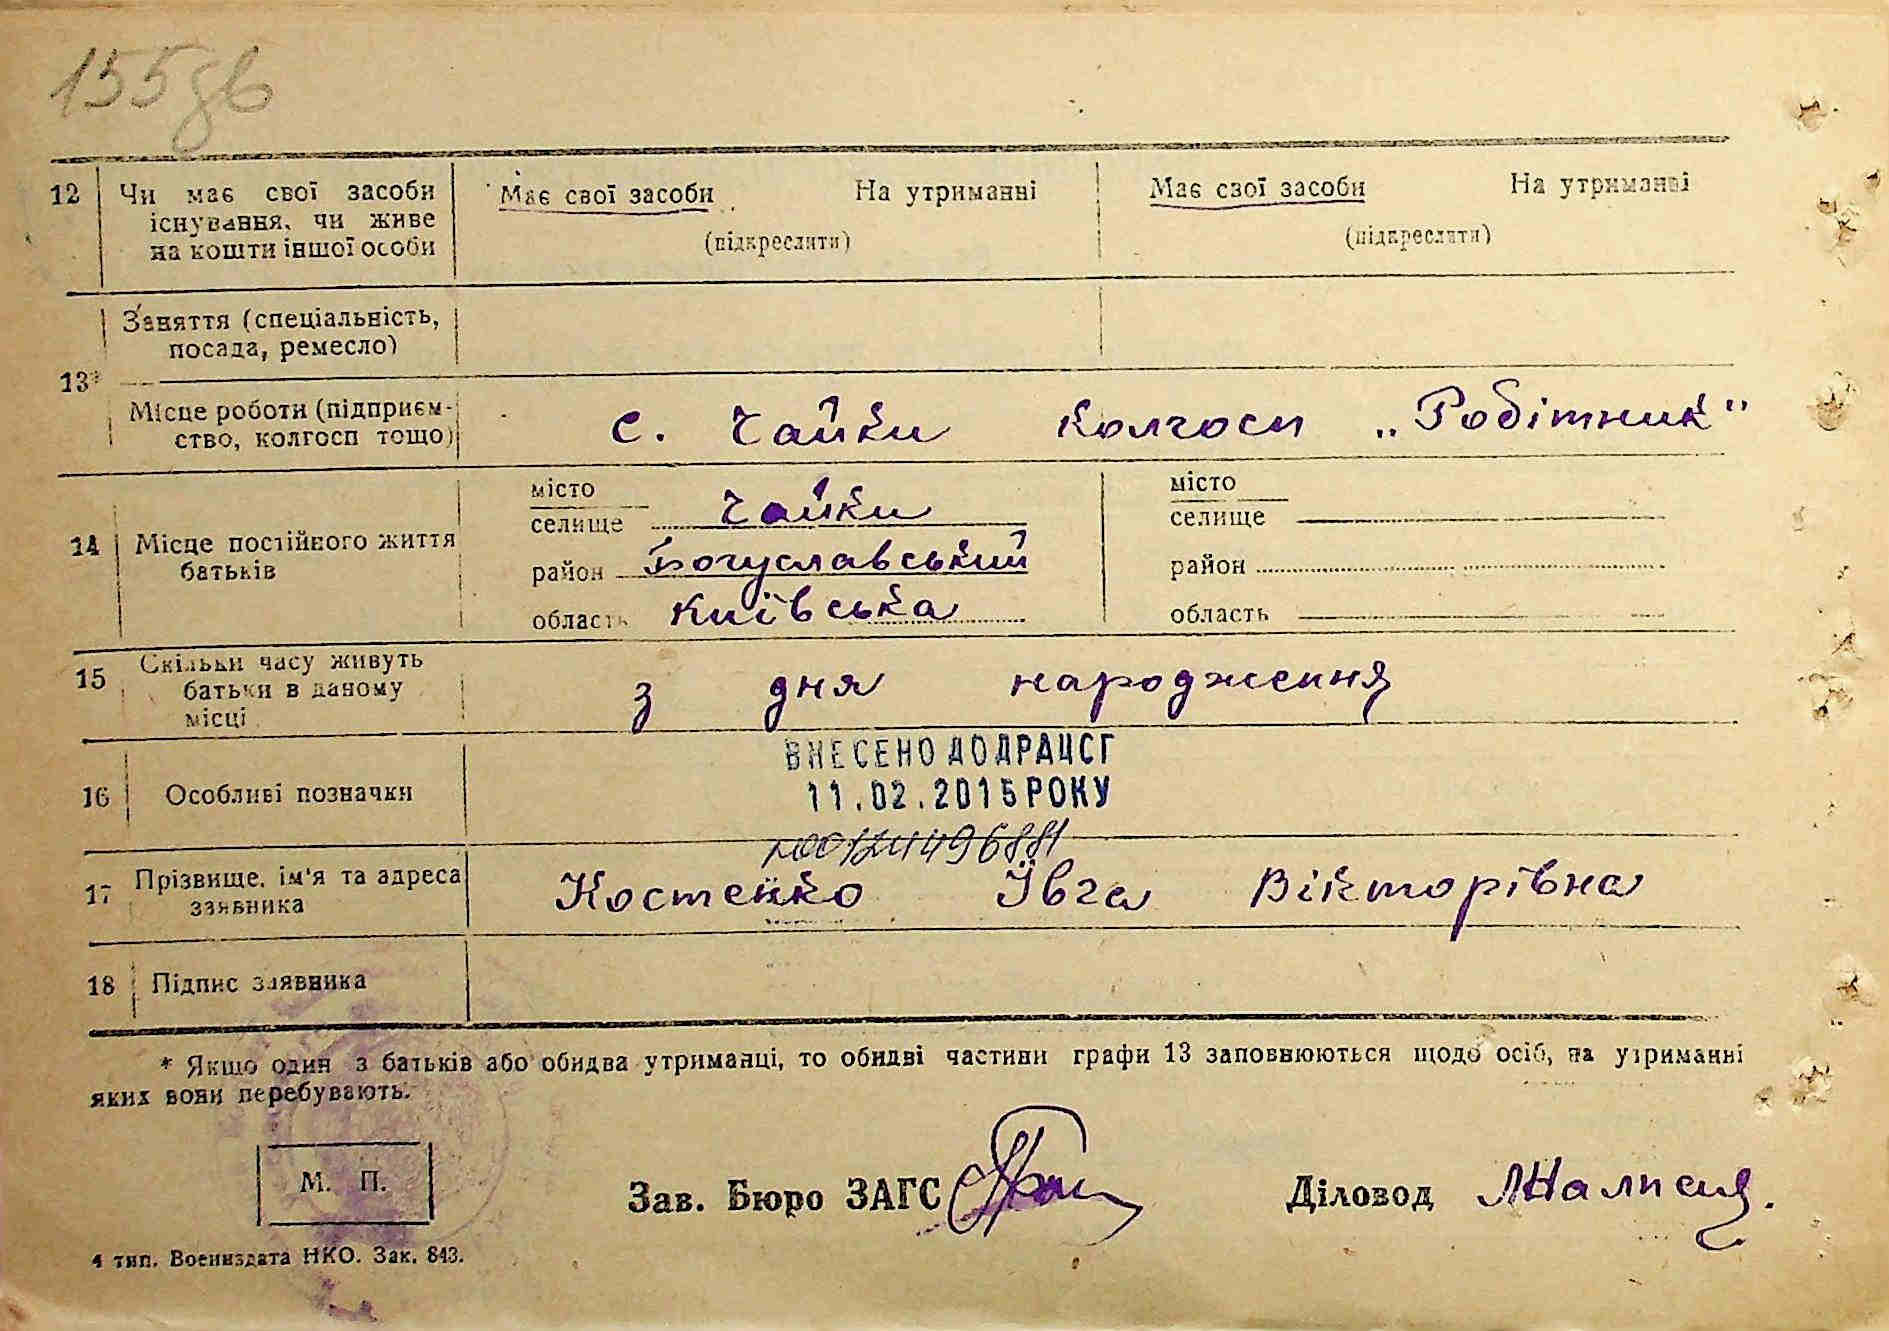 155зв
12 Чи має свої засоби існування, чи живе на кошти іншої особи
Має свої засоби На утриманні (підкреслити)
Має свої засоби На утриманні (підкреслити)
13*
Заняття (спеціальність, посада, ремесло)
Місце роботи (підприємство, колгосп тощо) с. Чайки колгосп „Робітник"
14 Місце постійного життя батьків
місто
селище Чайки
район Богуславський
область Київська
місто
селище
район
область
15 Скільки часу живуть батьки в даному місці з дня народження
16 Особливі позначки
ВНЕСЕНО ДО ДРАЦСГ
11.02.2015 РОКУ
№00124496881
17 Прізвище, ім'я та адреса заявника Костенко Івга Вікторівна
18 Підпис заявника
* Якщо один з батьків або обидва утриманці, то обидві частини графи 13 заповнюються щодо осіб, на утриманні
яких вони перебувають.
М. П.
Зав. Бюро ЗАГС
Діловод
4 тип. Воениздата НКО. Зак. 843.